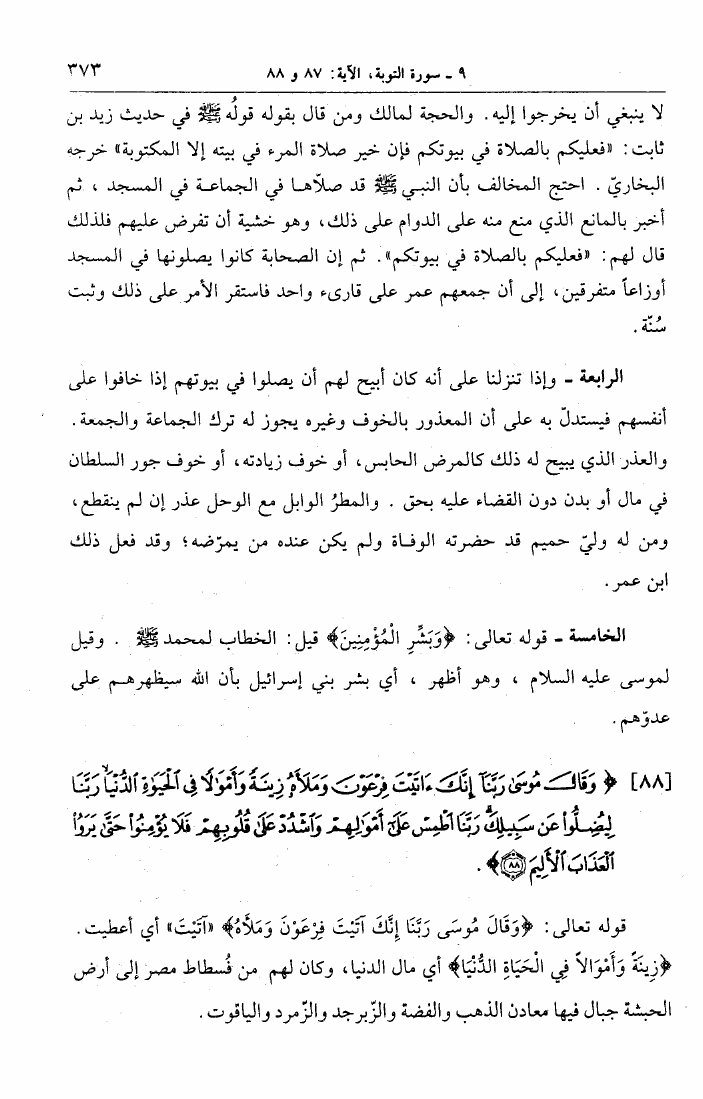 ٩ ـ سورة التوبة، الآية: ٨٧ و ٨٨ ٣٧٣
لا ينبغي أن يخرجوا إليه. والحجة لمالك ومن قال بقوله قولُه ﷺ في حديث زيد بن
ثابت: «فعليكم بالصلاة في بيوتكم فإن خير صلاة المرء في بيته إلا المكتوبة» خرجه
البخاريّ. احتج المخالف بأن النبي ﷺ قد صلّاها في الجماعة في المسجد، ثم
أخبر بالمانع الذي منع منه على الدوام على ذلك، وهو خشية أن تفرض عليهم فلذلك
قال لهم: «فعليكم بالصلاة في بيوتكم». ثم إن الصحابة كانوا يصلونها في المسجد
أوزاعاً متفرقين، إلى أن جمعهم عمر على قارىء واحد فاستقر الأمر على ذلك وثبت
سُنّة.
الرابعة ـ وإذا تنزلنا على أنه كان أبيح لهم أن يصلوا في بيوتهم إذا خافوا على
أنفسهم فيستدلّ به على أن المعذور بالخوف وغيره يجوز له ترك الجماعة والجمعة.
والعذر الذي يبيح له ذلك كالمرض الحابس، أو خوف زيادته، أو خوف جور السلطان
في مال أو بدن دون القضاء عليه بحق. والمطرُ الوابل مع الوحل عذر إن لم ينقطع،
ومن له وليّ حميم قد حضرته الوفاة ولم يكن عنده من يمرّضه؛ وقد فعل ذلك
ابن عمر.
الخامسة ـ قوله تعالى: ﴿وَبَشِّرِ الْمُؤْمِنِينَ﴾ قيل: الخطاب لمحمد ﷺ. وقيل
لموسى عليه السلام، وهو أظهر، أي بشر بني إسرائيل بأن الله سيظهرهم على
عدوّهم.
[٨٨] ﴿وَقَالَ مُوسَىٰ رَبَّنَآ إِنَّكَ ءَاتَيْتَ فِرْعَوْنَ وَمَلَأَهُ زِينَةً وَأَمْوَٰلًا فِى ٱلْحَيَوٰةِ ٱلدُّنْيَا رَبَّنَا
لِيُضِلُّوا۟ عَن سَبِيلِكَ ۖ رَبَّنَا ٱطْمِسْ عَلَىٰٓ أَمْوَٰلِهِمْ وَٱشْدُدْ عَلَىٰ قُلُوبِهِمْ فَلَا يُؤْمِنُوا۟ حَتَّىٰ يَرَوُا۟
ٱلْعَذَابَ ٱلْأَلِيمَ ٨٨﴾.
قوله تعالى: ﴿وَقَالَ مُوسَى رَبَّنَا إِنَّكَ آتَيْتَ فِرْعَوْنَ وَمَلَأَهُ﴾ «آتَيْتَ» أي أعطيت.
﴿زِينَةً وَأَمْوَالاً فِي الْحَيَاةِ الدُّنْيَا﴾ أي مال الدنيا، وكان لهم من فُسطاط مصر إلى أرض
الحبشة جبال فيها معادن الذهب والفضة والزّبرجد والزّمرد والياقوت.